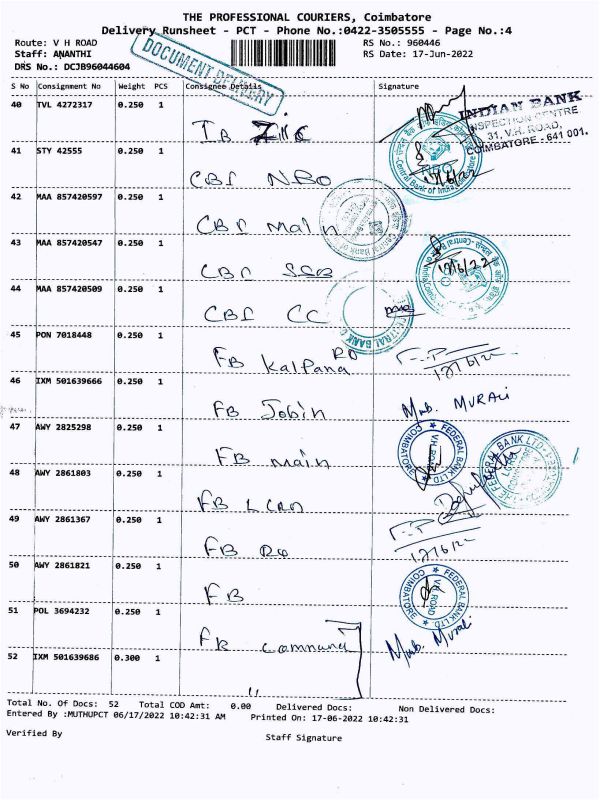 THE PROFESSIONAL COURIERS, Coimbatore
Delivery Runsheet - PCT - Phone No.:0422-3505555 - Page No.:4
Route: V H ROAD RS No.: 960446
Staff: ANANTHI RS Date: 17-Jun-2022
DRS No.: DCJB96044604
DOCUMENT DELIVERY
S No Consignment No Weight PCS Consignee Details Signature
40 TVL 4272317 0.250 1
INDIAN BANK
INSPECTION CENTRE
31, V.H. ROAD,
COIMBATORE - 641 001.
41 STY 42555 0.250 1
CBI NBO
42 MAA 857420597 0.250 1
CBI Main
43 MAA 857420547 0.250 1
CBI SSB
17/6/22
44 MAA 857420509 0.250 1
CBI CC
45 PON 7018448 0.250 1
FB Kalpana RO
17/6/22
46 IXM 501639666 0.250 1
FB Jobin
Mrb. MURALI
47 AWY 2825298 0.250 1
FB main
FEDERAL BANK LTD. COIMBATORE V.H. ROAD
48 AWY 2861803 0.250 1
FB LCRD
49 AWY 2861367 0.250 1
FB RO
17/6/22
50 AWY 2861821 0.250 1
FB
FEDERAL BANK LTD. COIMBATORE V.H. ROAD
51 POL 3694232 0.250 1
FB
Murali
52 IXM 501639686 0.300 1
"
Total No. Of Docs: 52 Total COD Amt: 0.00 Delivered Docs: Non Delivered Docs:
Entered By :MUTHUPCT 06/17/2022 10:42:31 AM Printed On: 17-06-2022 10:42:31
Verified By Staff Signature